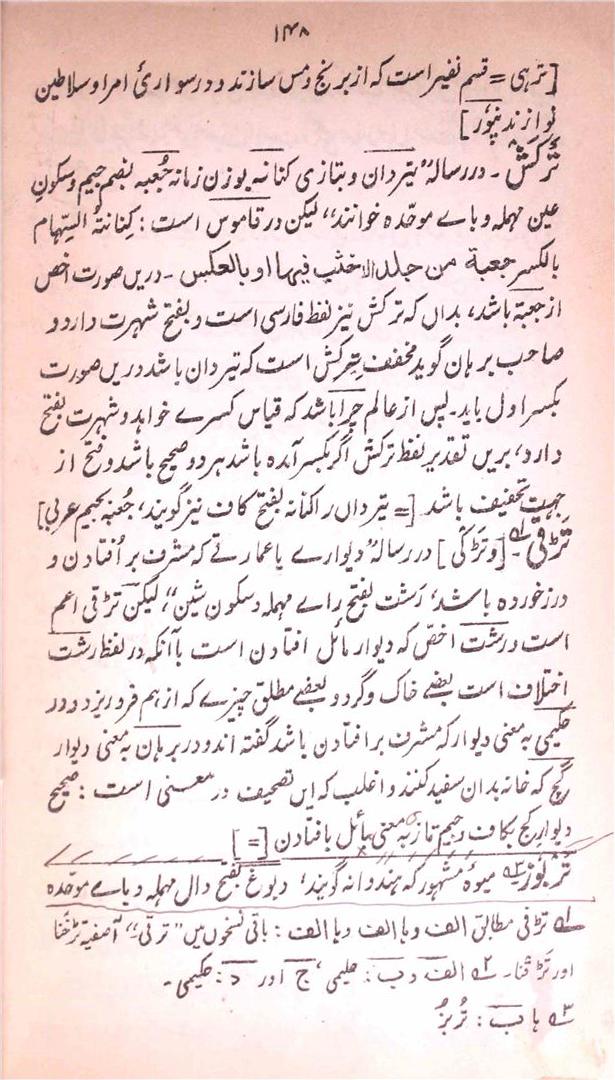 ۱۴۸
[ترہی = قسم نفیر است کہ از برنج و مس سازند و در سواریٔ امرا و سلاطین
نوازند نپؤر]
تَرکَش۔ در رسالہ ”تیردان و بتازی کنانہ بوزن زمانہ جُعبہ بضم جیم و سکون
عین مہملہ و باے موحّدہ خوانند“ لیکن در قاموس است : کِنانَۃُ السِّہام
بالکسر جعبة من جلد لاخشب فیها او بالعکس ۔ دریں صورت اخص
از جعبۃ باشد، بداں کہ ترکش نیز لفظ فارسی است و بفتح شہرت دارد و
صاحب برہان گوید مخفف تیرکش است کہ تیردان باشد دریں صورت
بکسر اول باید۔ پس از عالم چرا باشد کہ قیاس کسرے خواہد و شہرت بفتح
دارد، بریں تقدیر لفظ ترکش اگر بکسر آمدہ باشد ہر دو صحیح باشد و فتح از
جہت تخفیف باشد [= تیرداں را کنانہ بفتح کاف نیز گویند، جُعبہ بجیم عربی]
تڑقی ۱؎ [وتَڑکی] در رسالہ ”دیوارے یا عمارتے کہ مشرف بر اُفتادن و
درز خوردہ باشد، رَشت بفتح راے مہملہ و سکون شین“، لیکن تڑقی اعم
است و رشت اخصّ کہ دیوار مائل افتادن است باآنکہ در لفظ رشت
اختلاف است بعضے خاک و گرد و بعضے مطلق چیزے کہ از ہم فرو ریزد و در
حلیمی بہ معنی دیوار کہ مشرف بر افتادن باشد گفتہ اند و در برہان بہ معنی دیوار
گچ کہ خانہ بداں سفید کنند و اغلب کہ ایں تصحیف در معنی است : صحیح
دیوار کج بکاف و جیم تازی بہ معنی مائل بافتادن [=]
تَربُوز ۳؎ میوہٗ مشہور کہ ہندوانہ گویند، دبوغ بفتح دال مہملہ و باے موحّدہ
۱؎ تڑقی مطابق الف و با الف و ہا الف : باقی نسخوں میں ”ترقی“، آصفیہ تڑخنا
اور تَڑقنا۔ ۲؎ الف و ب : حلیمی، ج اور د : حکیمی۔
۳؎ ہا ب : تُربُز